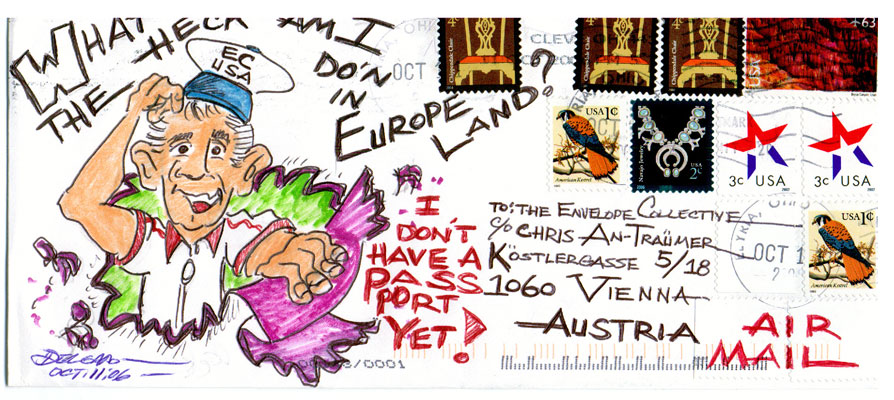 WHAT THE HECK AM I
DO'N
IN
EUROPE
LAND?
EC
USA
I
DON'T
HAVE A
PASS
PORT
YET!
TO: THE ENVELOPE COLLECTIVE
C/O CHRIS AN-TRAÜMER
KÖSTLERGASSE 5/18
1060 VIENNA
AUSTRIA
AIR
MAIL
OCT. 11. 06
4c
Chippendale Chair
4c
Chippendale Chair
4c
Chippendale Chair
63
USA
USA 1¢
American Kestrel
Navajo Jewelry
USA
2c
3c USA
3c USA
USA 1¢
American Kestrel
OCT 1
OCT 1
CLEV
/0001